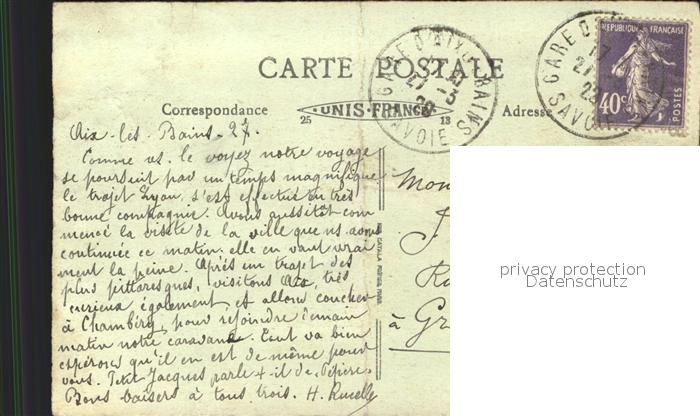 CARTE POSTALE
Correspondance
UNIS-FRANCE
25 13
Adresse
GARE D'AIX-LES-BAINS
SAVOIE
GARE D
17
27
SAVOIE
REPUBLIQUE FRANÇAISE
40c
POSTES
Aix les Bains - 27.
Comme vs. le voyez notre voyage
se poursuit par un temps magnifique
le trajet Lyon s'est effectué en très
bonne compagnie. Avons aussitôt com
mencé la visite de la ville que ns avons
continuée ce matin. elle en vaut vrai
ment la peine. Après un trajet des
plus pittoresques, visitons Aix, très
curieux également, et allons coucher
à Chambéry, pour rejoindre demain
matin notre caravane. Tout va bien
espérons qu'il en est de même pour
vous. Petit Jacques parle-t-il de
Bons baisers à tous trois. H.
Mon
J
Ru
à Gr
privacy protection
Datenschutz